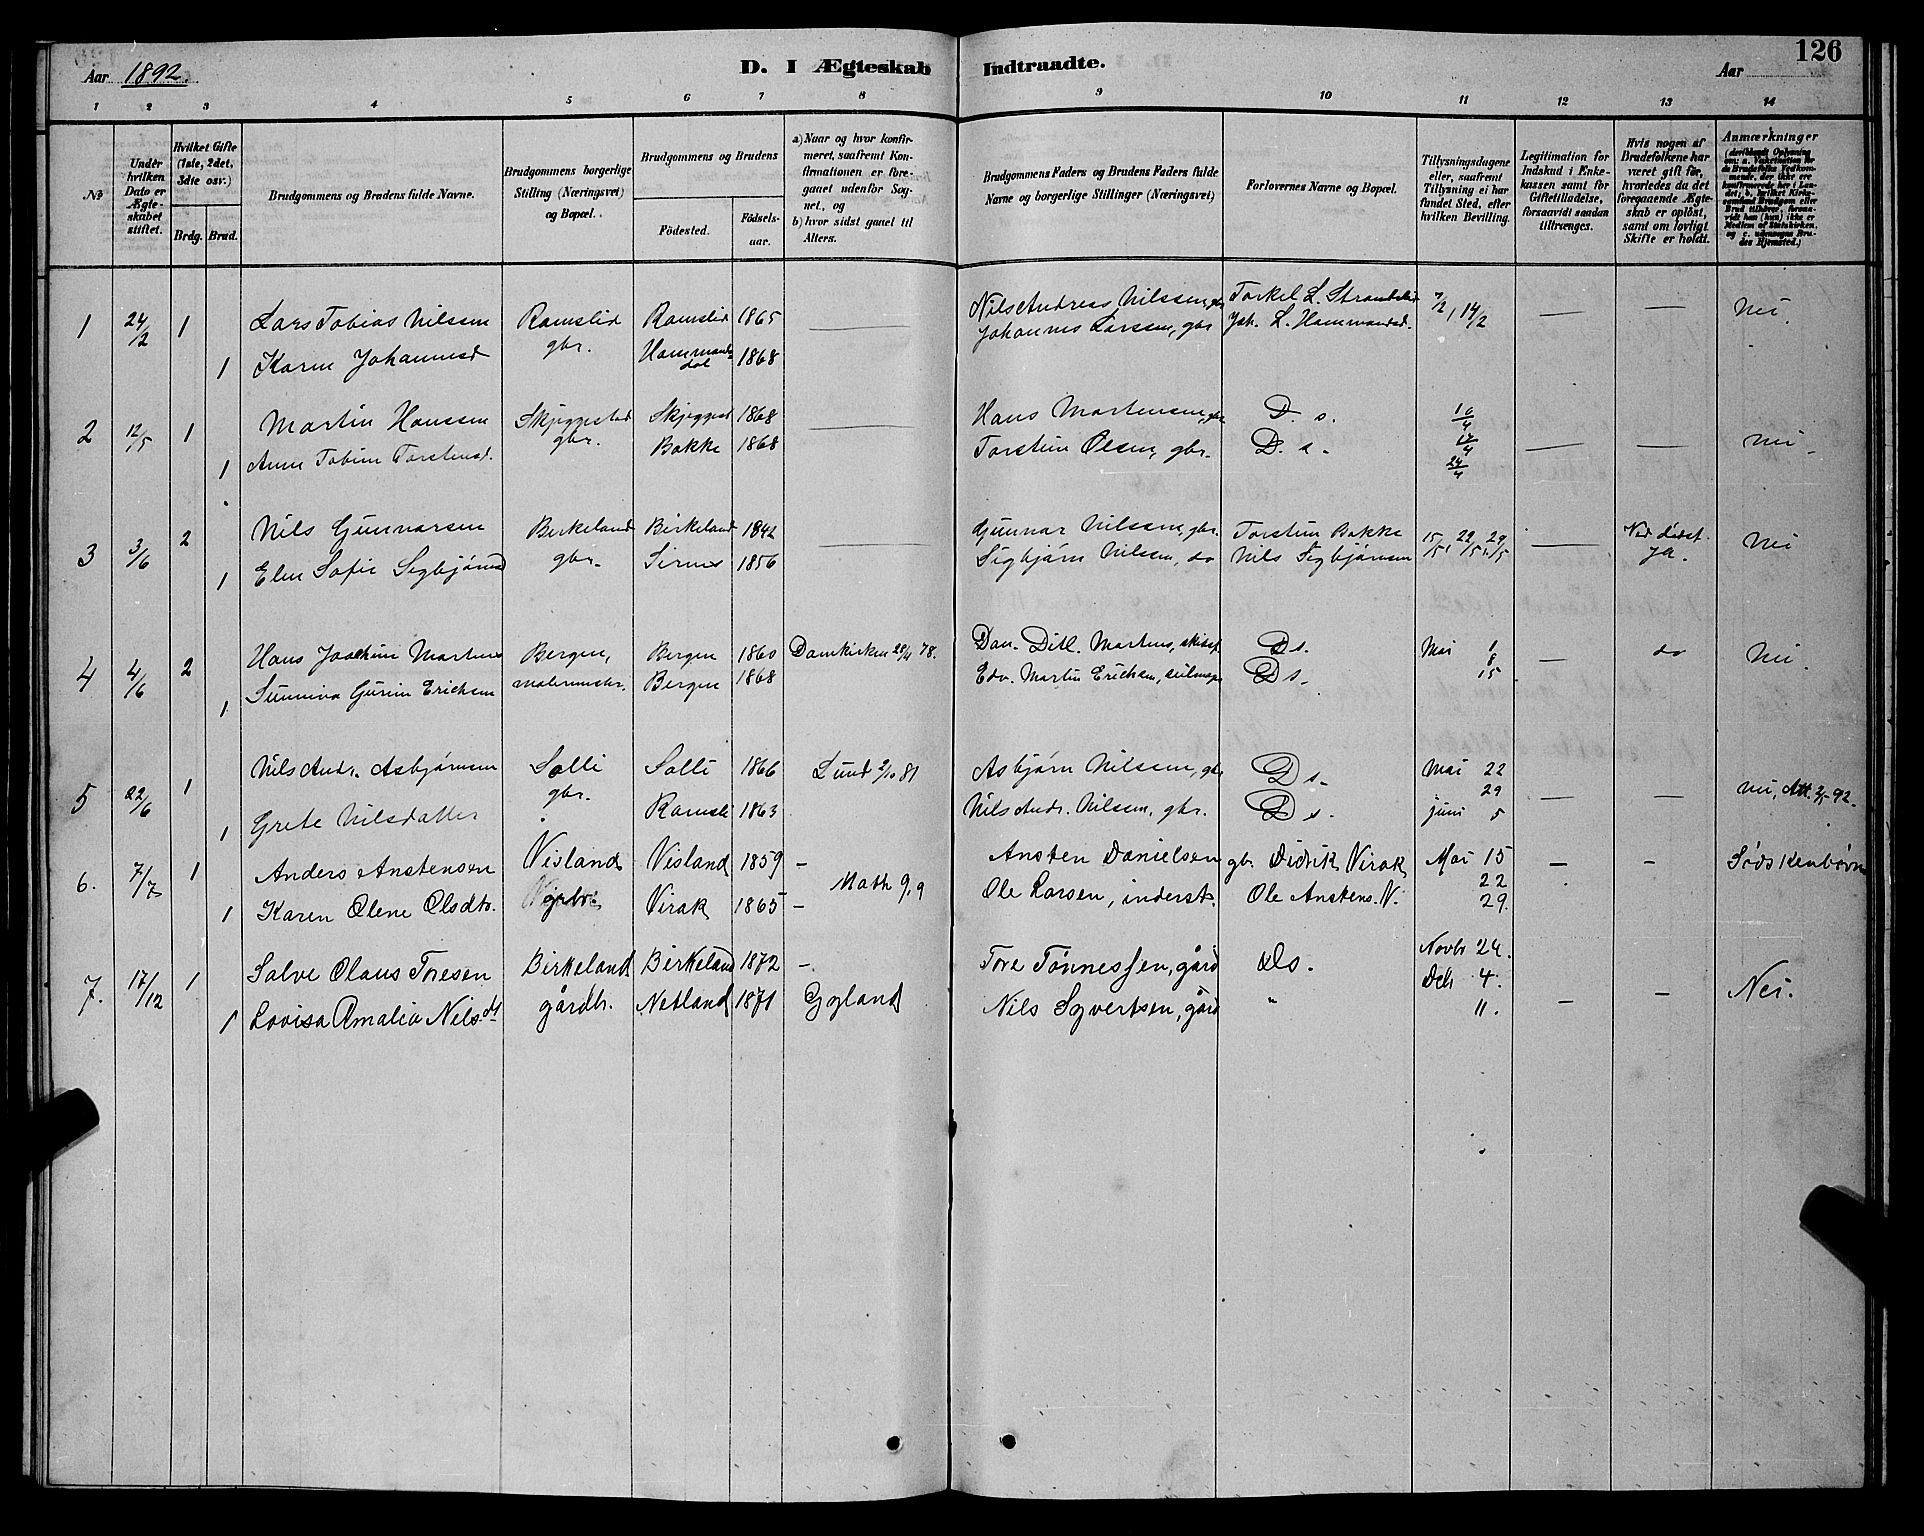 126
Aar 1892.
D. I Ægteskab Indtraadte.
Aar
1 2 3 4 5 6 7 8 9 10 11 12 13 14
No
Under hvilken Dato er Ægteskabet stiftet.
Hvilket Gifte (1ste, 2det, 3dte osv.)
Brdg. Brud.
Brudgommens og Brudens fulde Navne.
Brudgommens borgerlige Stilling (Næringsvei) og Bopæl.
Brudgommens og Brudens
Födested. Födselsaar.
a) Naar og hvor konfirmeret, saafremt Konfirmationen er foregaaet udenfor Sognet, og
b) hvor sidst gaaet til Alters.
Brudgommens Faders og Brudens Faders fulde Navne og borgerlige Stillinger (Næringsvei)
Forlovernes Navne og Bopæl.
Tillysningsdagene eller, saafremt Tillysning ei har fundet Sted, efter hvilken Bevilling.
Legitimation for Indskud i Enkekassen samt for Giftetilladelse, forsaavidt saadan tiltrænges.
Hvis nogen af Brudefolkene har været gift før, hvorledes da det foregaaende Ægteskab er oplöst, samt om lovligt Skifte er holdt.
Anmærkninger
1 24/2 1 Lars Tobias Nilssen Ramslid Ramslid 1865 — Nils Andreas Nilssen, gbr Torkel L. Strandslid 7/2, 14/2 — — Nei.
1 Karen Johannesd gbr. Hammandsdal 1868 Johannes Larssen, gbr Joh. L. Hammandsd.
2 12/5 1 Martin Hanssen Skjeggestad Skjeggest 1868 — Hans Martensen, gbr D. s. 10/4 — — Nei
1 Anne Tobine Torstensd. gbr. Bakke 1868 Torstein Olsen, gbr. D. s. 17/4
24/4
3 3/6 2 Nils Gunnarsen Birkeland Birkeland 1842 — Gunnar Nilssen, gbr. Torstein Bakke 15/5, 22/5, 29/5 — Ved dödsf. Nei
1 Elen Sofie Sigbjörnsd gbr. Sirnes 1856 Sigbjörn Nilsen, do Nils Sigbjörnsen ja.
4 4/6 2 Hans Joachim Martens Bergen, Bergen 1860 Domkirken 28/4 78. Dan. Ditl. Martens, Ds. Mai 1 — do Nei.
8
1 Sunniva Gurine Erichsen malermstr. Bergen 1868 Edv. Martin Erichsen, seilmager Ds. 15
5 22/6 1 Nils Andr. Asbjörnsen Solli Solli 1866 Lund 2/10 81 Asbjörn Nilsen, gbr Ds. Mai 22
gbr. 29 — — nei, Att. 2/5-92.
1 Grete Nilsdatter Ramsli 1863 Nils Andr. Nilsen, gbr. Ds. juni 5
6. 7/7 1 Anders Anstensen Visland Visland 1859 - Ansten Danielsen gb. Didrik Virak Mai 15 — - Södskenbörn
Math 9,9 22
1 Karen Olene Olsdtr. Virak 1865 - Ole Larsen, inderst. Ole Anstens. V. 29.
7. 17/12 1 Salve Olaus Toresen Birkeland Birkeland 1872 -. Tore Tönnessen, gård Ds. Novbr 24.
Dcb 4. - - Nei.
1 Lovisa Amalia Nilsdt gårdbr. Netland 1871 Gyland Nils Syvertsen, gård " 11.